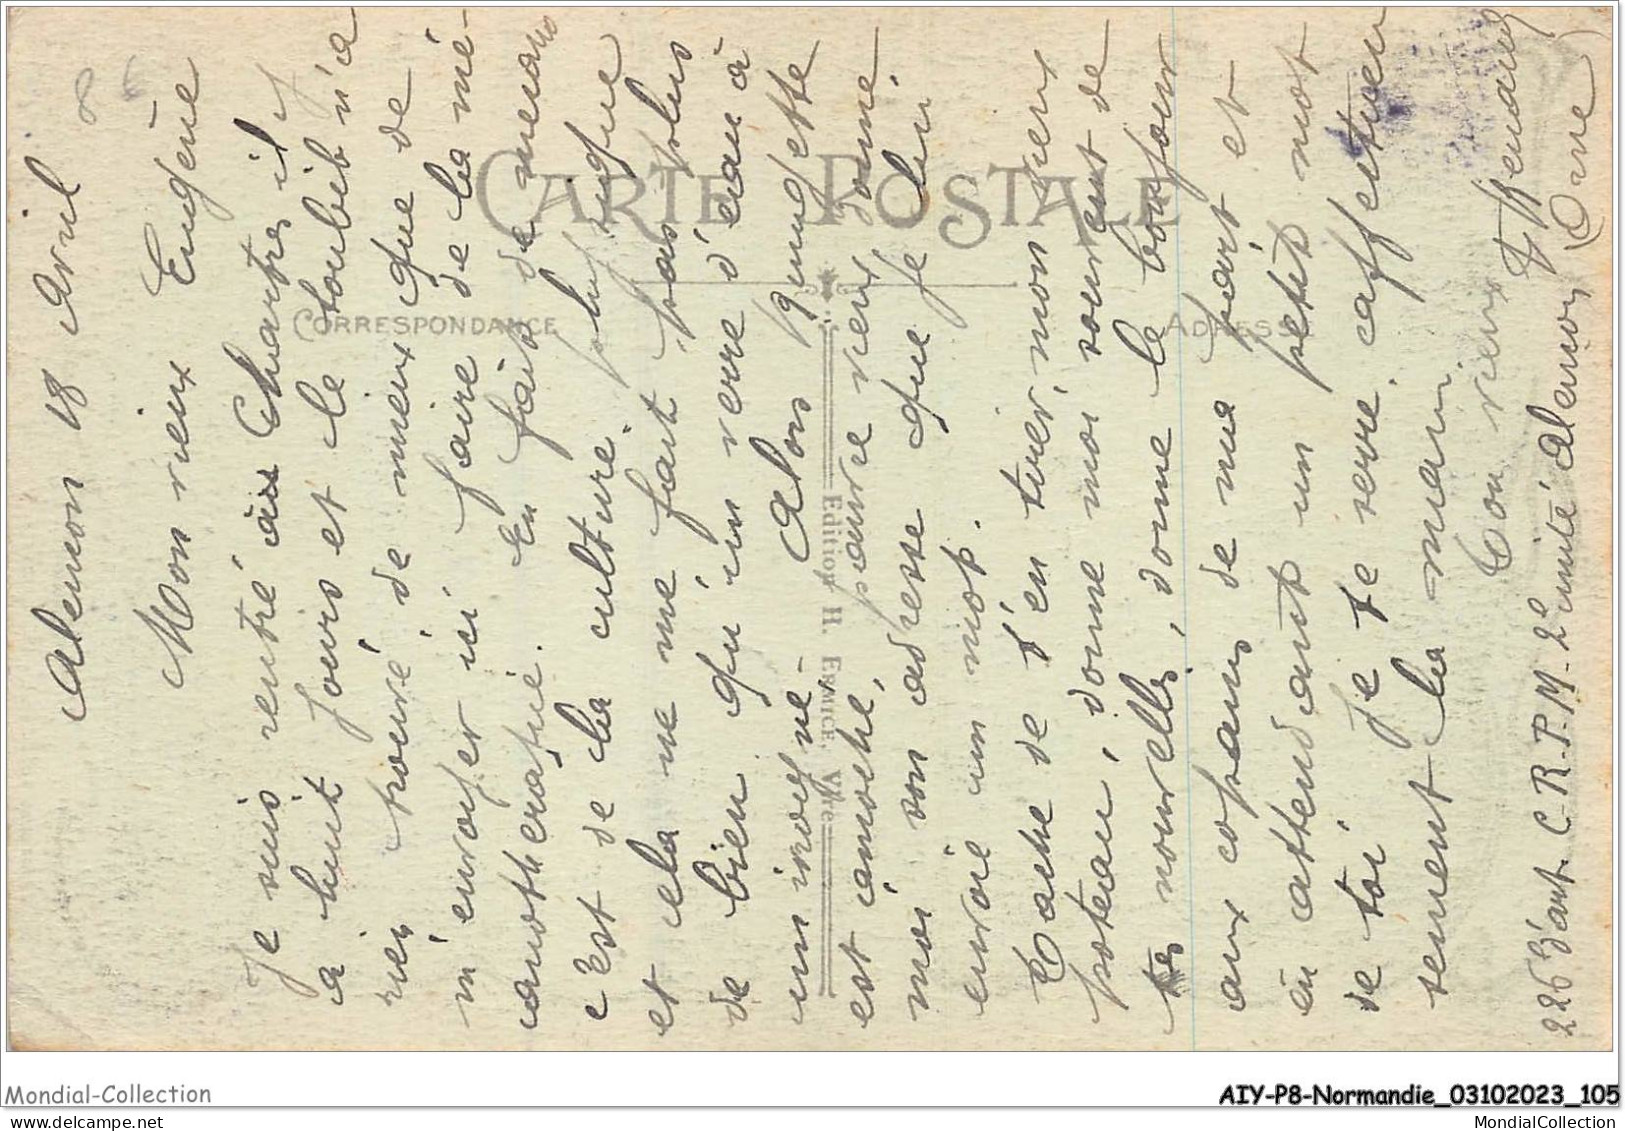 Alencon 18 Avril
Mon vieux Eugène
Je suis rentré au Chartres il y
a huit jours et le toubib n'a
rien trouvé de mieux que de
m'envoyer ici faire de la mé-
canothérapie. En fait de mécano
c'est de la culture. physique
et cela ne me fait pas plus
de bien qu'un verre d'eau à
un
Alors
est amoché, pauvre vieux donne
moi son adresse que je lui
envoie un mot.
Tache de t'en tirer, mon vieux
poteau, donne moi souvent de
tes nouvelles, donne le bonjour
aux copains de ma part et
en attendant un petit mot
de toi je te serre affectueu
sement la main.
Ton vieux
226 d'art. C.R.P.M- 2e unité Alencon (Orne)
CARTE POSTALE
CORRESPONDANCE
ADRESSE
Edition H. Ermice, Vire
Mondial-Collection
AIY-P8-Normandie_03102023_105
MondialCollection